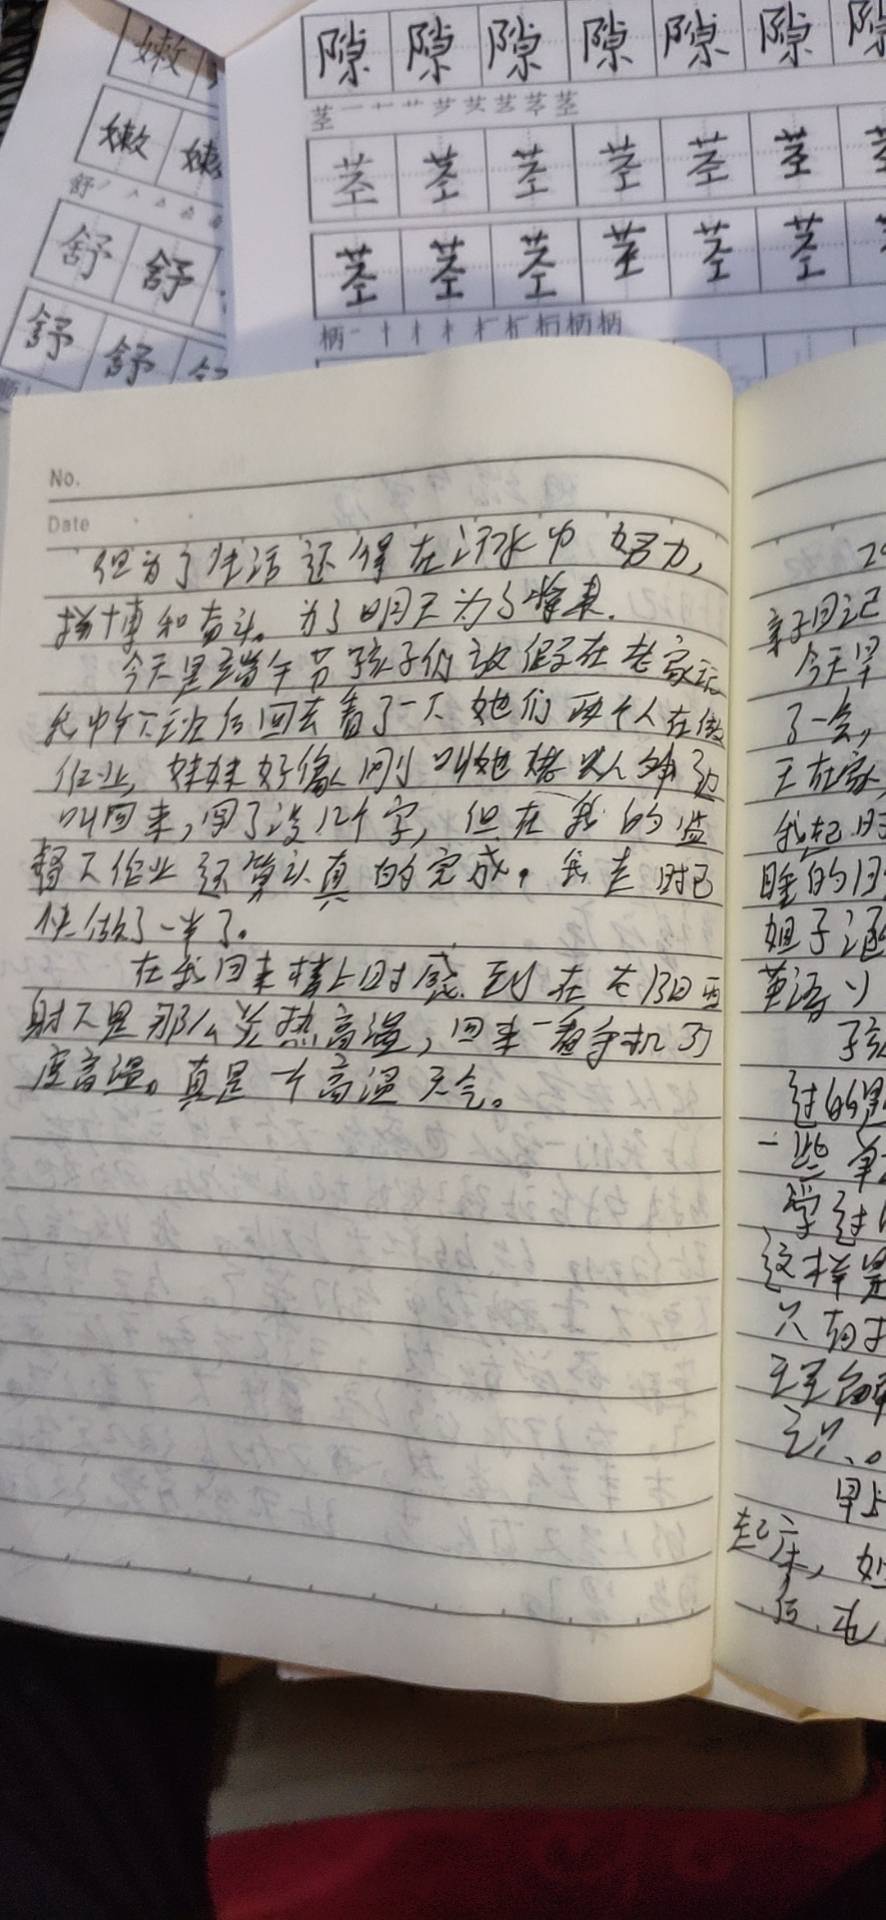 嫩
嫩
舒
舒 舒
舒 舒
隙 隙 隙 隙 隙 隙
茎
茎 茎 茎 茎 茎 茎
茎 茎 茎 茎 茎 茎
柄 柄 柄
No.
Date
但为了生活还得在汗水中努力,
拼博和奋斗。为了明天为了将来.
今天是端午节孩子们放假在老家玩
中午下班后回去看了一下她们两个人在做
作业, 妹妹好像刚叫她
叫回来,写了没几个字, 但在我的监
督下作业还算认真的完成。我走时已
快做了一半了。
在我回来楼上时感到在太阳西
射下是那么炎热高温, 回来一看手机
度高温。真是个高温天气。
亲子日记
今天早
了一会,
天在家
我起
睡的
姐子
英语
孩
过的
一些单
学过
这样是
只有
理解
识.。
早上
起床,
后